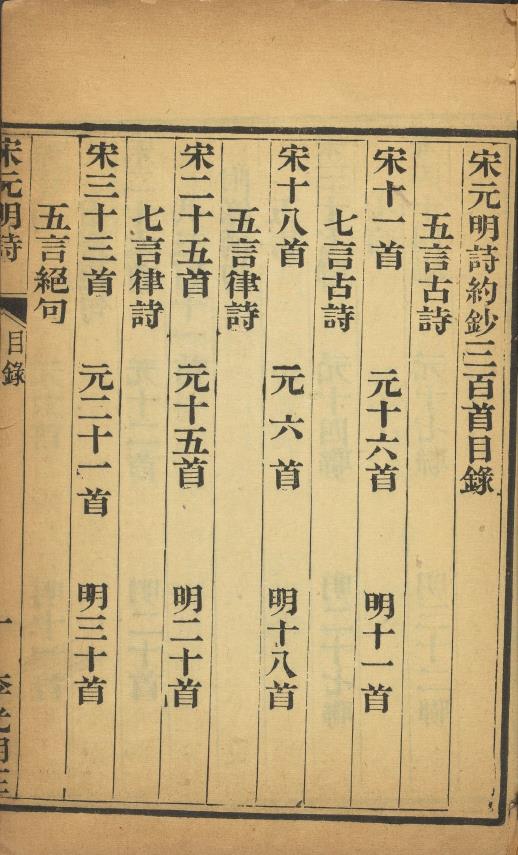 宋元明詩約鈔三百首目錄
五言古詩
宋十一首 元十六首 明十一首
七言古詩
宋十八首 元六首 明十八首
五言律詩
宋二十五首 元十五首 明二十首
七言律詩
宋三十三首 元二十一首 明三十首
五言絕句
宋元明詩 目錄 一